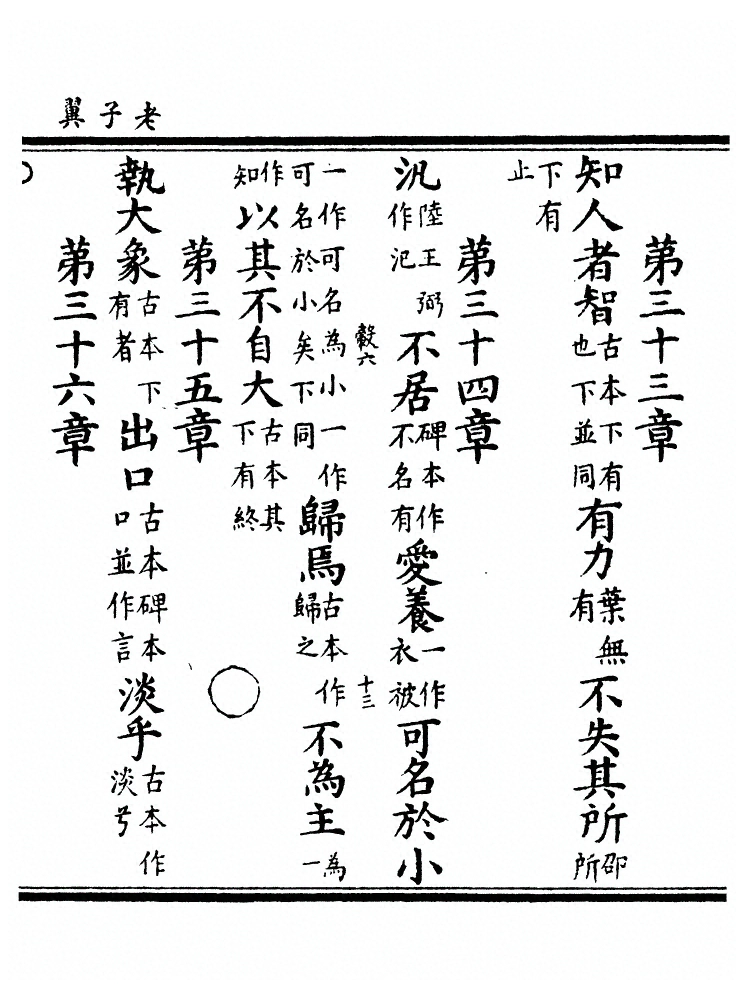 老子翼
第三十三章
知人者智古本下有也下並同有力葉無有不失其所邵所
下有止
第三十四章
汎陸王弼作氾不居碑本作不名有愛養一作衣被可名於小
榖六
十三
一作可名為小一作可名於小矣下同歸焉古本作歸之不為主為一
作知以其不自大古本其下有終
第三十五章
執大象古本下有者出口古本碑本口並作言淡乎古本作淡兮
第三十六章